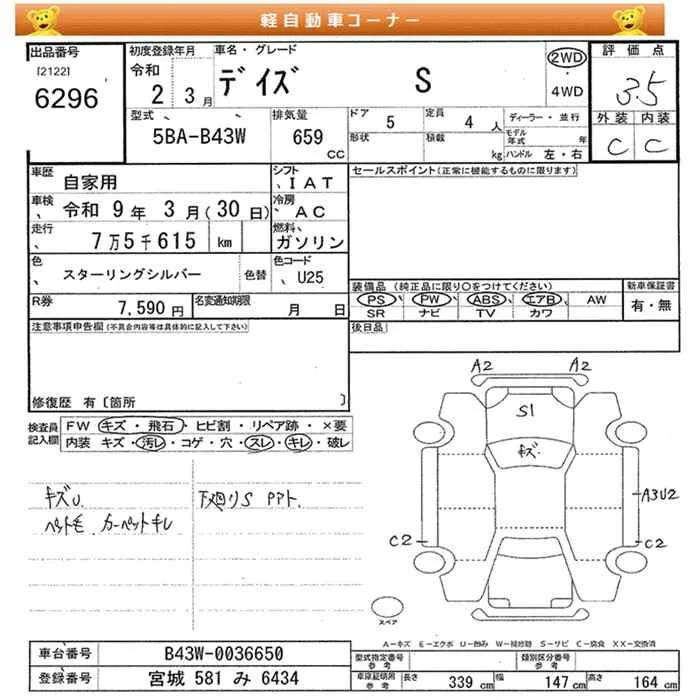 軽自動車コーナー
出品番号
[2122]
6296
初度登録年月
令和
2 3月
車名・グレード
デイズ S
2WD
4WD
評価点
3.5
外装 内装
C C
型式
5BA-B43W
排気量
659
CC
ドア
5
定員
4 人
形状
積載
kg
ディーラー・並行
モデル年式 年
ハンドル 左・右
車歴
自家用
シフト
IAT
車検
令和 9年 3月(30日)
冷房
AC
走行
7万5千615 km
燃料
ガソリン
色
スターリングシルバー
色替
色コード
U25
R券
7,590円
名変通知期限
月 日
セールスポイント(正常に機能するものに限ります)
装備品 (純正品に限り○をつけてください)
PS PW ABS エアB AW
SR ナビ TV カワ
新車保証書
有・無
後日品
注意事項申告欄(不具合内容等は具体的に記入して下さい)
修復歴 有〔箇所 〕
検査員記入欄
FW キズ・飛石・ヒビ割・リペア跡・×要
内装 キズ・汚レ・コゲ・穴・スレ・キレ・破レ
キズU
ペット毛 カーペットキレ
下廻りS PPト
A2 A2
S1
キズ
A3U2
C2 C2
スペア
A-キズ E-エクボ U-凹み W-補修跡 S-サビ C-腐食 XX-交換済
車台番号
B43W-0036650
登録番号
宮城 581 み 6434
型式指定番号
参考
類別区分番号
参考
車原証明用
参考
長さ 339 cm 幅 147 cm 高さ 164 cm